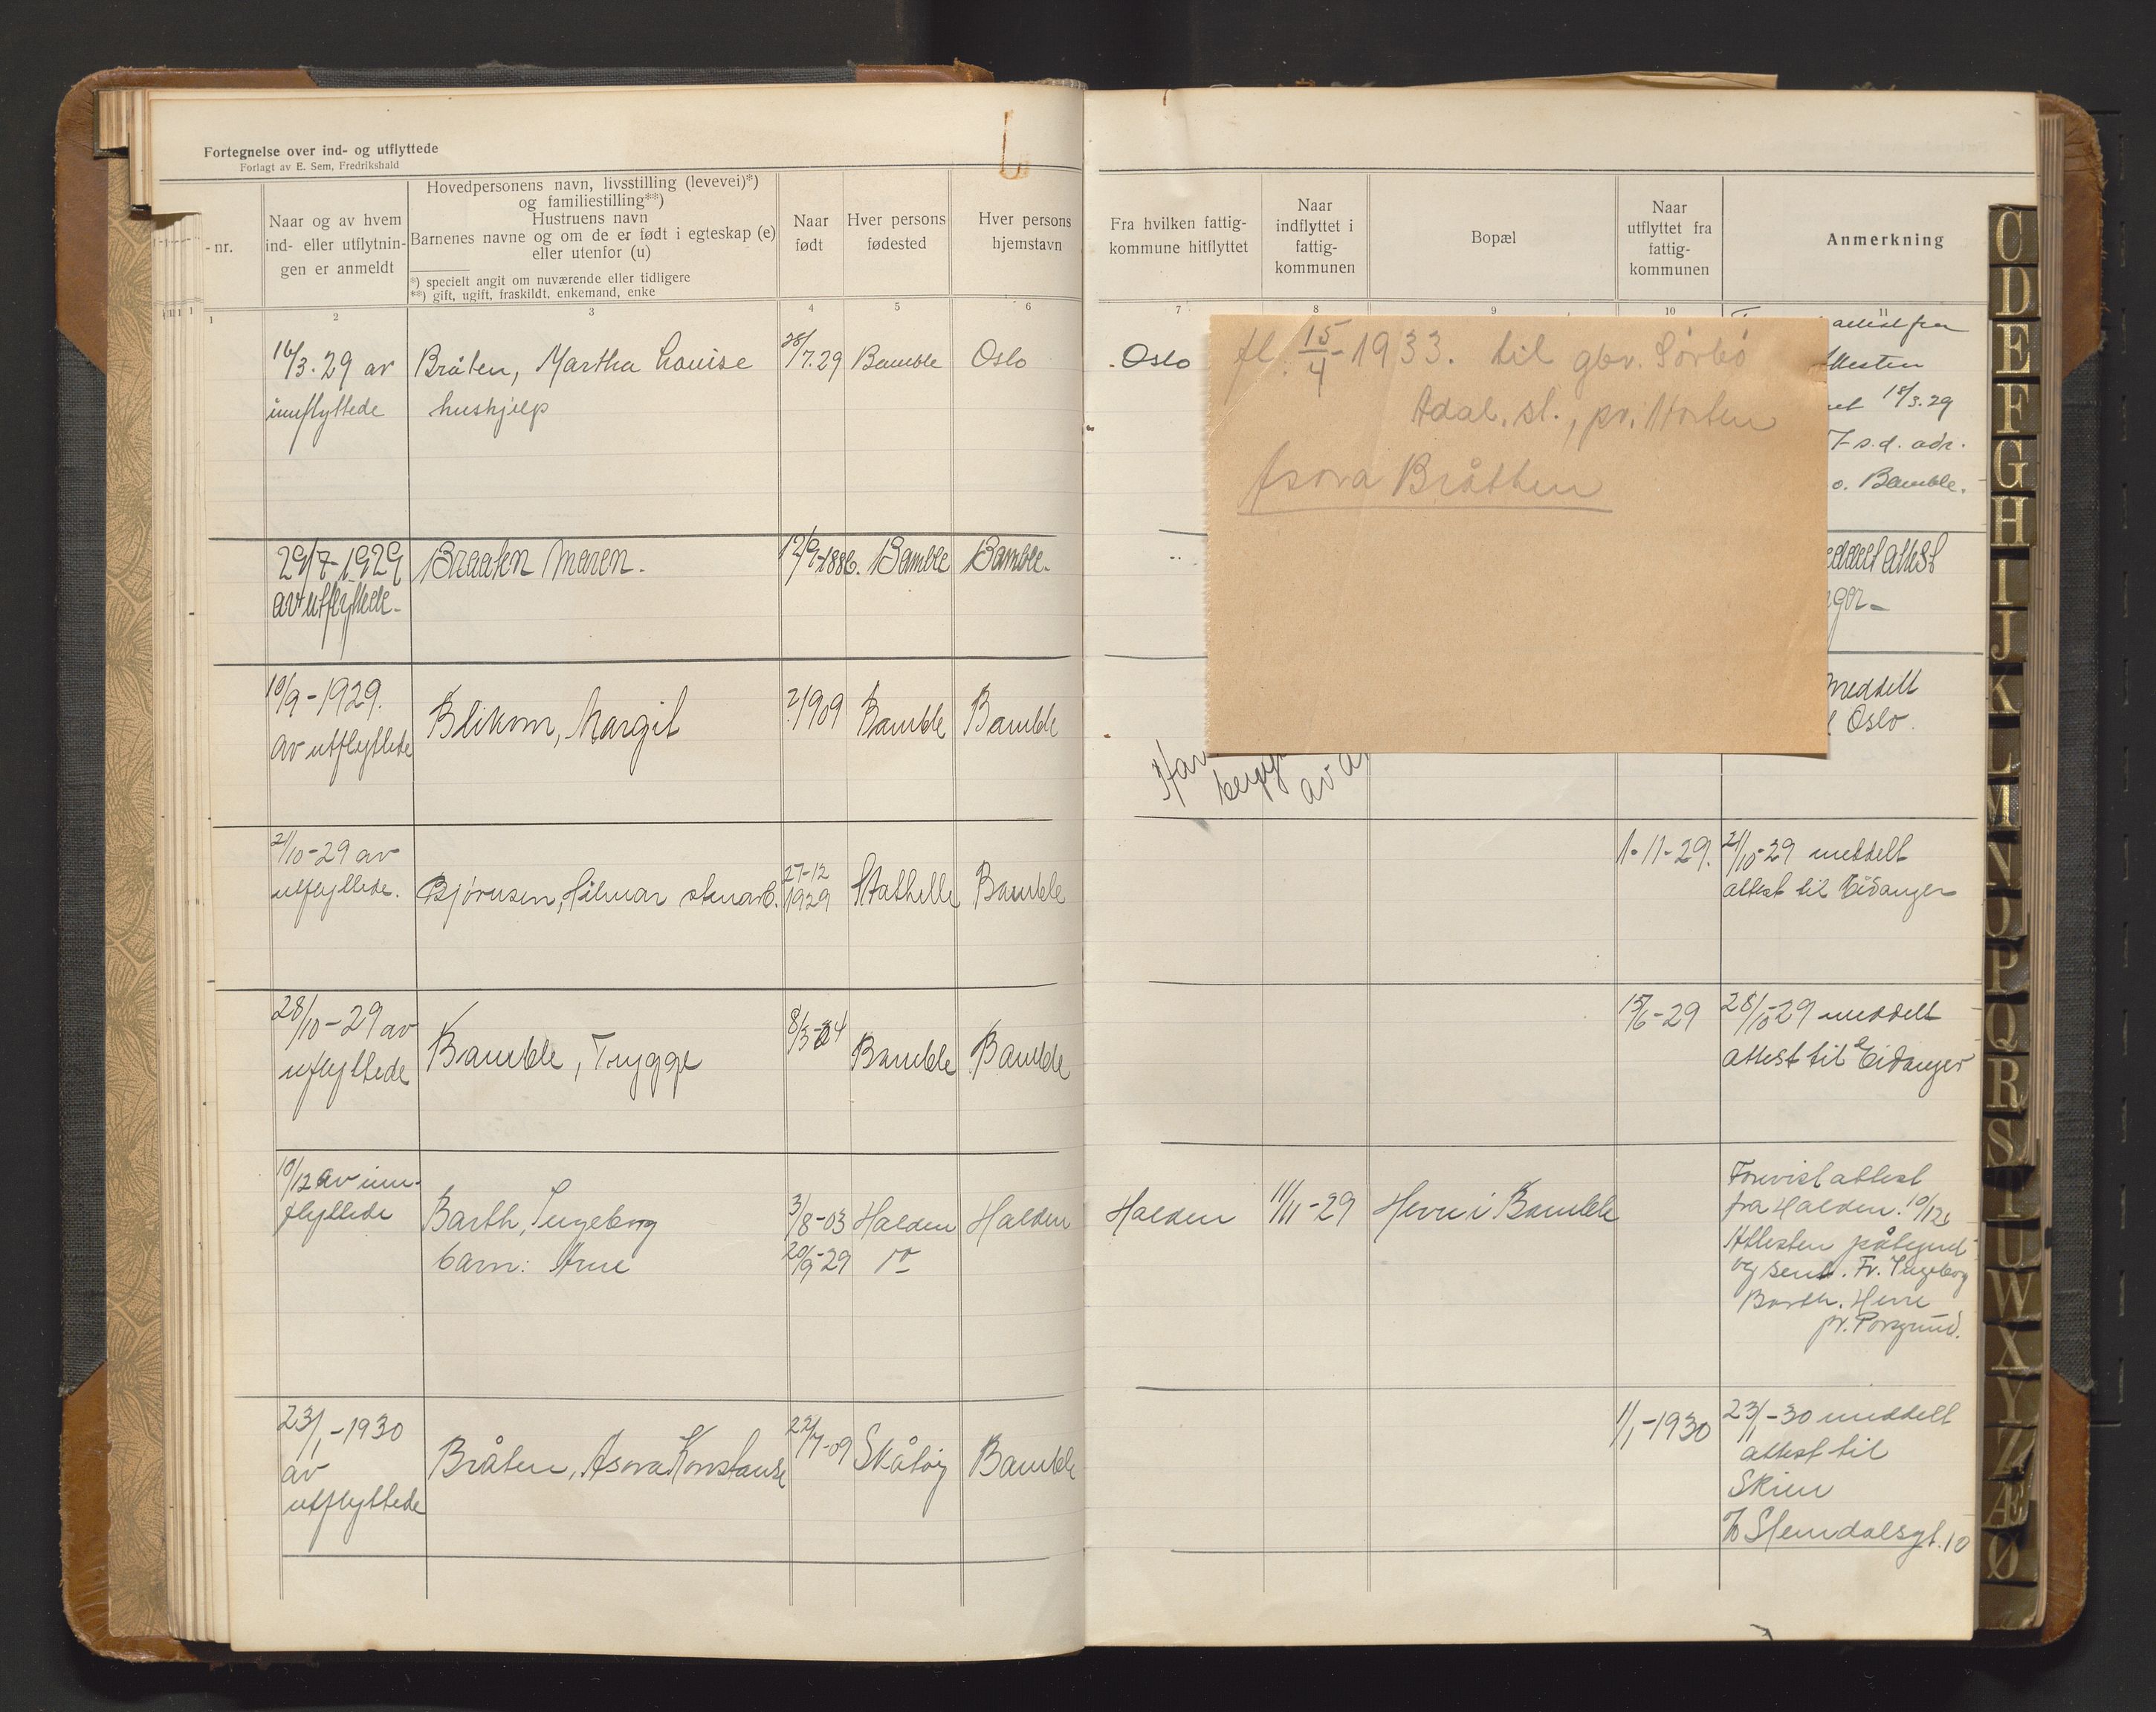 Fortegnelse over ind- og utflyttede
Forlagt av E. Sem, Fredrikshald
- nr.
Naar og av hvem
ind- eller utflytnin-
gen er anmeldt
Hovedpersonens navn, livsstilling (levevei)*)
og familiestilling**)
Hustruens navn
Barnenes navne og om de er født i egteskap (e)
eller utenfor (u)
*) specielt angit om nuværende eller tidligere
**) gift, ugift, fraskildt, enkemand, enke
Naar
født
Hver persons
fødested
Hver persons
hjemstavn
Fra hvilken fattig-
kommune hitflyttet
Naar
indflyttet i
fattig-
kommunen
Bopæl
Naar
utflyttet fra
fattig-
kommunen
Anmerkning
1 2 3 4 5 6 7 8 9 10 11
16/3.29 av
innflyttede
Bråten, Martha Louise
hushjelp
28/7.29
Bamble
Oslo
Oslo
attest fra
Attesten
18/3.29
s.d. adr.
o. Bamble.
fl. 15/4-1933. til gbr. Sörbö
Adal. st., pr. Horten
Asora Bråtten
29/7-1929
av utflyttede-
Braaten Maren.
12/9-1886.
Bamble
Bamble-
attest
10/9-1929.
av utflyttede
Blikom, Margit
2/1909
Bamble
Bamble
meddelt
Oslo.
Har
av
21/10-29 av
utflyttede.
Bjørnsen, Hilmar stenarb.
27-12
1929
Stathelle
Bamble
1-11-29.
21/10-29 meddelt
attest til Eidanger
28/10-29 av
utflyttede
Bamble, Trygge
8/3-04
Bamble
Bamble
15/6-29
28/10-29 meddelt
attest til Eidanger
10/12 av inn-
flyttede
Barth, Ingeborg
barn: Arne
3/8-03
20/9-29
Halden
Halden
Halden
11/11-29
Herre i Bamble
Forevist attest
fra Halden. 10/12
Attesten påtegnet
og sent. Fr. Ingeborg
Barth. Herre
pr. Porsgrund.
23/1-1930
av
utflyttede
Bråten, Asora Konstanse
22/7-09
Skåtøy
Bamble
1/1-1930
23/1-30 meddelt
attest til
Skien
Stendalsgt. 10
C
D
E
F
G
H
I
J
K
L
M
N
O
P
Q
R
S
T
U
W
X
Y
Z
Æ
Ø